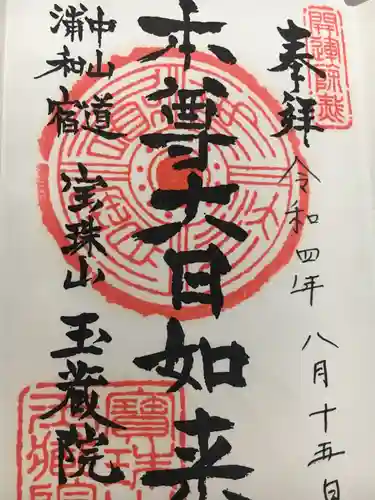 奉拝
令和四年 八月十五日
本尊大日如来
中山道
浦和宿
宝珠山 玉蔵院